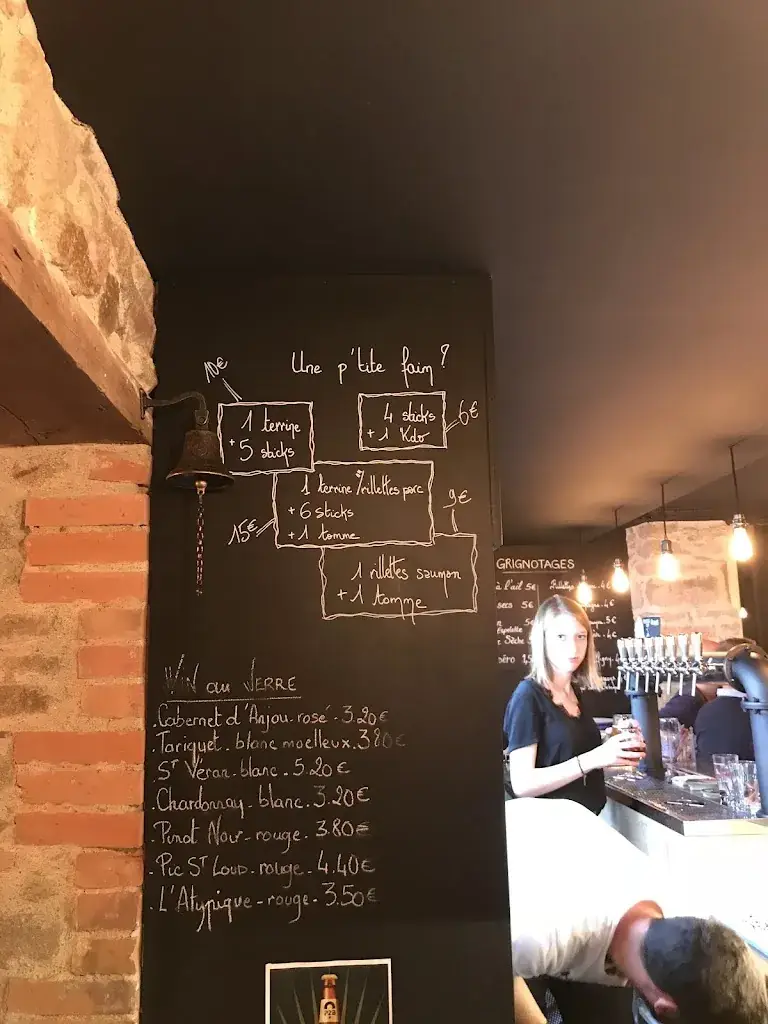 Une p'tite faim ?
10€
1 terrine
+ 5 sticks
4 sticks
+ 1 Kdo
6€
1 terrine / rillettes porc
+ 6 sticks
+ 1 tomme
15€
9€
1 rillettes saumon
+ 1 tomme
VIN au VERRE
. Cabernet d'Anjou. rosé. 3.20€
. Tariquet. blanc moelleux. 3.80€
. ST Véran. blanc. 5.20€
. Chardonnay. blanc. 3.20€
. Pinot Noir. rouge. 3.80€
. Pic ST Loup. rouge. 4.40€
. L'Atypique - rouge. 3.50€
GRIGNOTAGES
à l'ail 5€
secs 5€